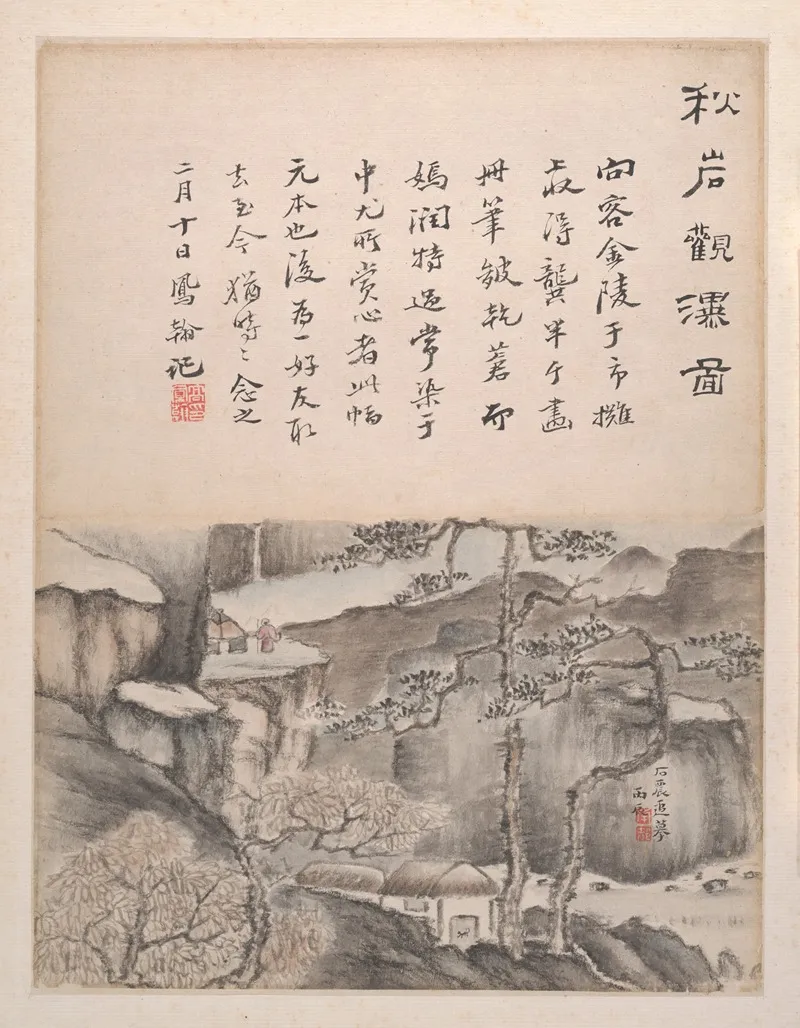 秋岩觀瀑圖
向客金陵于市攤
收得龔半千畫
冊筆皴乾蒼而
嫣潤特過常染于
中尤所賞心者此幅
元本也後為一好友取
去至今猶時〻念之
二月十日鳳翰記
追摹
丙辰